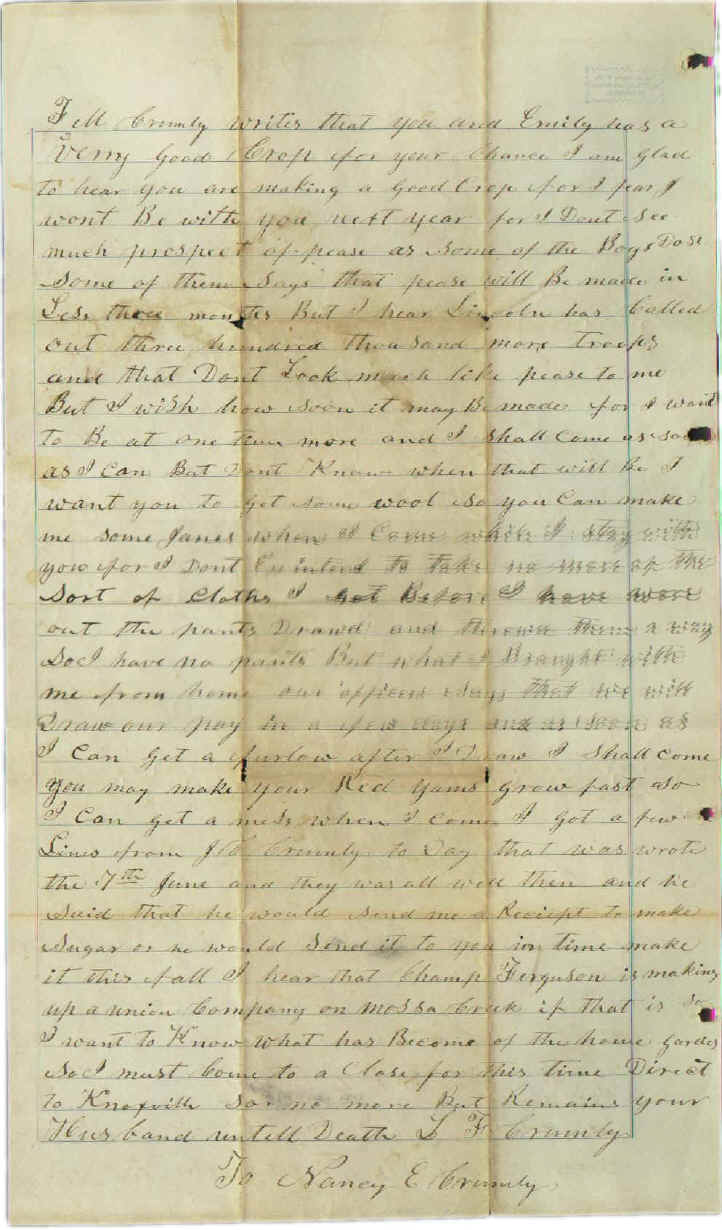 Fell Crumly writes that you and Emily has a
Verry Good Crop for your Chance I am glad
to hear you are making a Good Crop for I fear I
wont Be with you next year for I Dont See
much prospect of pease as Some of the Boys Dose
Some of them Says that pease will Be made in
Less three months But I hear Lincoln has Called
out three hundred thousand more Troops
and that Dont Look much like pease to me
But I wish how Soon it may Be made for I want
to Be at one time more and I Shall Come as soon
as I Can But Dont Know when that will Be I
want you to get Some wool So you Can make
me Some Janes when I Come while I stay with
you for I Dont intend to take no more of the
Sort of Cloths I got Before I have wore
out the pants Drawd and throwed them a way
So I have no pants But what I Braught with
me from home our officers Says that we will
Draw our pay in a few days and as Soon as
I Can get a furlow after I Draw I Shall come
you may make your Red yams grow fast So
I Can get a mess when I come I got a few
Lines from J Crumly to Day that was wrote
the 17th June and they was all well then and he
Said that he would Send me a Reciept to make
Sugar or he would Send it to you in time make
it this fall I hear that Champ Ferguson is making
up a union Company on mossa Creek if that is So
I want to Know what has Become of the home gardes
So I must Come to a Close for this time Direct
to Knoxville So no more But Remains your
Husband untell Death L F Crumly
To Nancy E Crumly